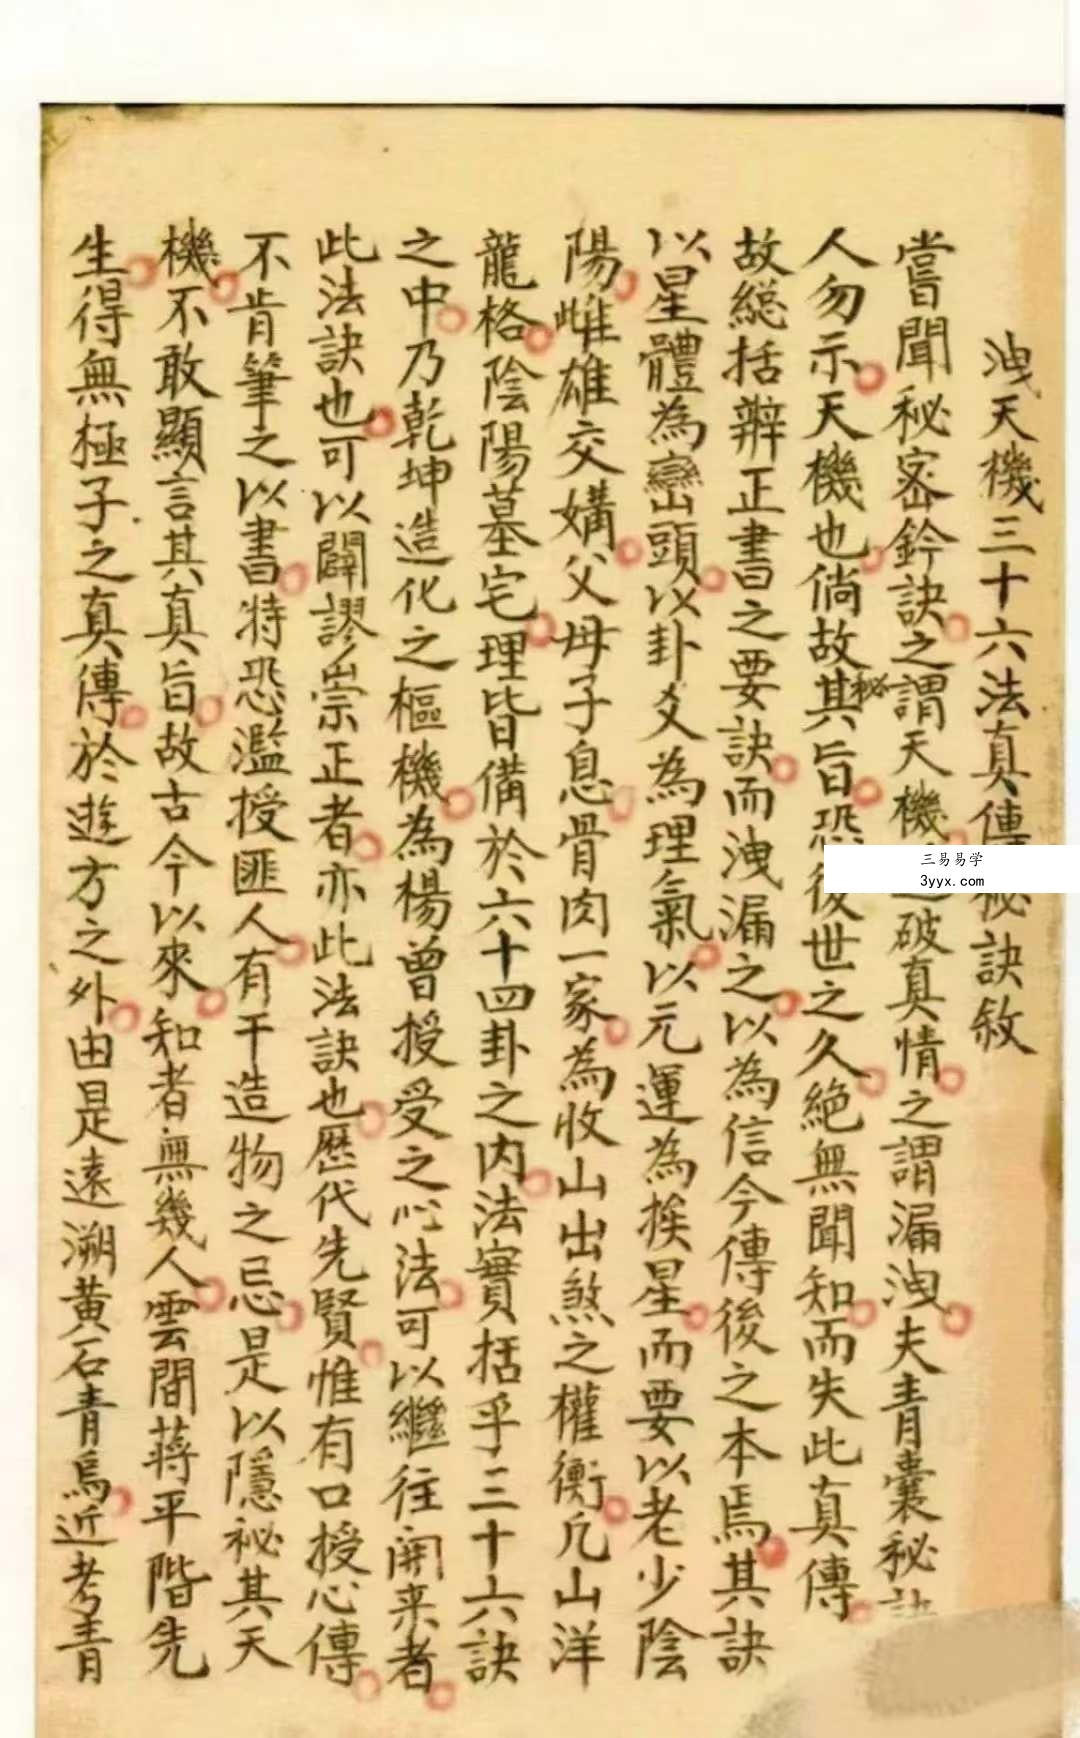 洩天機三十六法真傳秘訣敘
嘗聞秘密鈐訣之謂天機破真情之謂漏洩夫青囊秘
人勿示天機也倘故其秘旨恐後世之久絕無聞知而失此真傳
故総括辯正書之要訣而洩漏之以為信今傳後之本焉其訣
以星體為巒頭以卦爻為理氣以元運為挨星而要以老少陰
陽雌雄交媾父母子息骨肉一家為收山出煞之權衡凢山洋
龍格陰陽墓宅理皆備於六十四卦之内法實括乎三十六訣
之中乃乾坤造化之樞機為楊曾授受之心法可以繼往開来者
此法訣也可以闢謬崇正者亦此法訣也歷代先賢惟有口授心傳
不肯筆之以書特恐濫授匪人有干造物之忌是以隱秘其天
機不敢顯言其真旨故古今以來知者無幾人雲間蒋平階先
生得無極子之真傳於遊方之外由是遠溯黄石青烏近考青
三易易学
3yyx.com